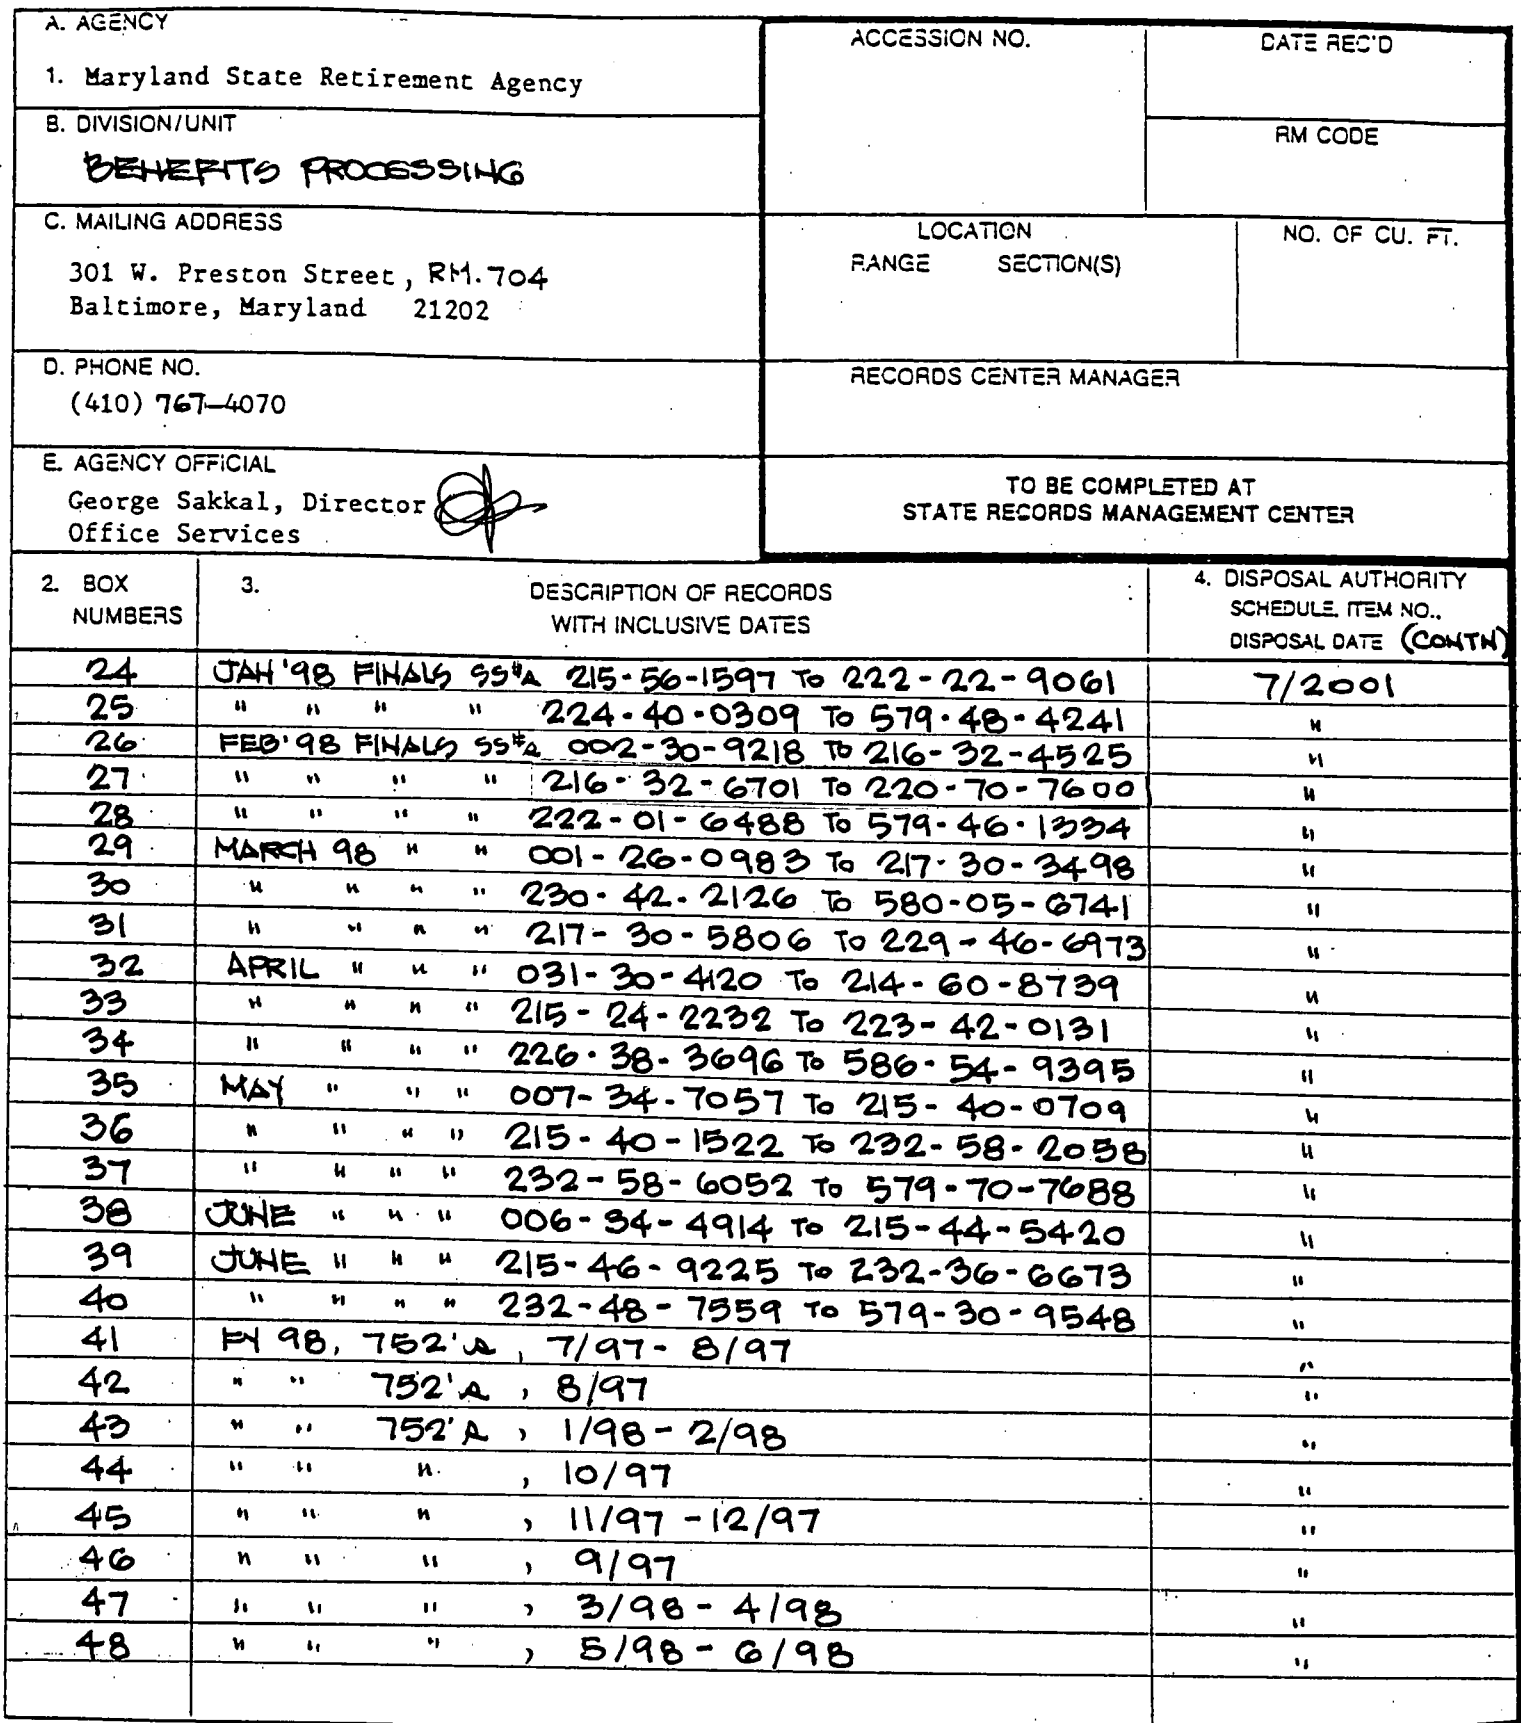 A. AGENCY
1. Maryland State Retirement Agency
B. DIVISION/UNIT
BENEFITS PROCESSING
C. MAILING ADDRESS
301 W. Preston Street, RM. 704
Baltimore, Maryland 21202
D. PHONE NO.
(410) 767-4070
E. AGENCY OFFICIAL
George Sakkal, Director
Office Services
ACCESSION NO.
DATE REC'D
RM CODE
LOCATION
RANGE SECTION(S)
NO. OF CU. FT.
RECORDS CENTER MANAGER
TO BE COMPLETED AT
STATE RECORDS MANAGEMENT CENTER
2. BOX
NUMBERS
3. DESCRIPTION OF RECORDS
WITH INCLUSIVE DATES
4. DISPOSAL AUTHORITY
SCHEDULE, ITEM NO.,
DISPOSAL DATE (CONTN)
24 JAN '98 FINALS SS#s 215-56-1597 To 222-22-9061 7/2001
25 " " " " 224-40-0309 To 579-48-4241 "
26 FEB '98 FINALS SS#s 002-30-9218 To 216-32-4525 "
27 " " " " 216-32-6701 To 220-70-7600 "
28 " " " " 222-01-6488 To 579-46-1334 "
29 MARCH 98 " " 001-26-0983 To 217-30-3498 "
30 " " " " 230-42-2126 To 580-05-6741 "
31 " " " " 217-30-5806 To 229-46-6973 "
32 APRIL " " " 031-30-4120 To 214-60-8739 "
33 " " " " 215-24-2232 To 223-42-0131 "
34 " " " " 226-38-3696 To 586-54-9395 "
35 MAY " " " 007-34-7057 To 215-40-0709 "
36 " " " " 215-40-1522 To 232-58-2058 "
37 " " " " 232-58-6052 To 579-70-7688 "
38 JUNE " " " 006-34-4914 To 215-44-5420 "
39 JUNE " " " 215-46-9225 To 232-36-6673 "
40 " " " " 232-48-7559 To 579-30-9548 "
41 FY 98, 752's, 7/97 - 8/97 "
42 " " 752's, 8/97 "
43 " " 752's, 1/98 - 2/98 "
44 " " " , 10/97 "
45 " " " , 11/97 - 12/97 "
46 " " " , 9/97 "
47 " " " , 3/98 - 4/98 "
48 " " " , 5/98 - 6/98 "